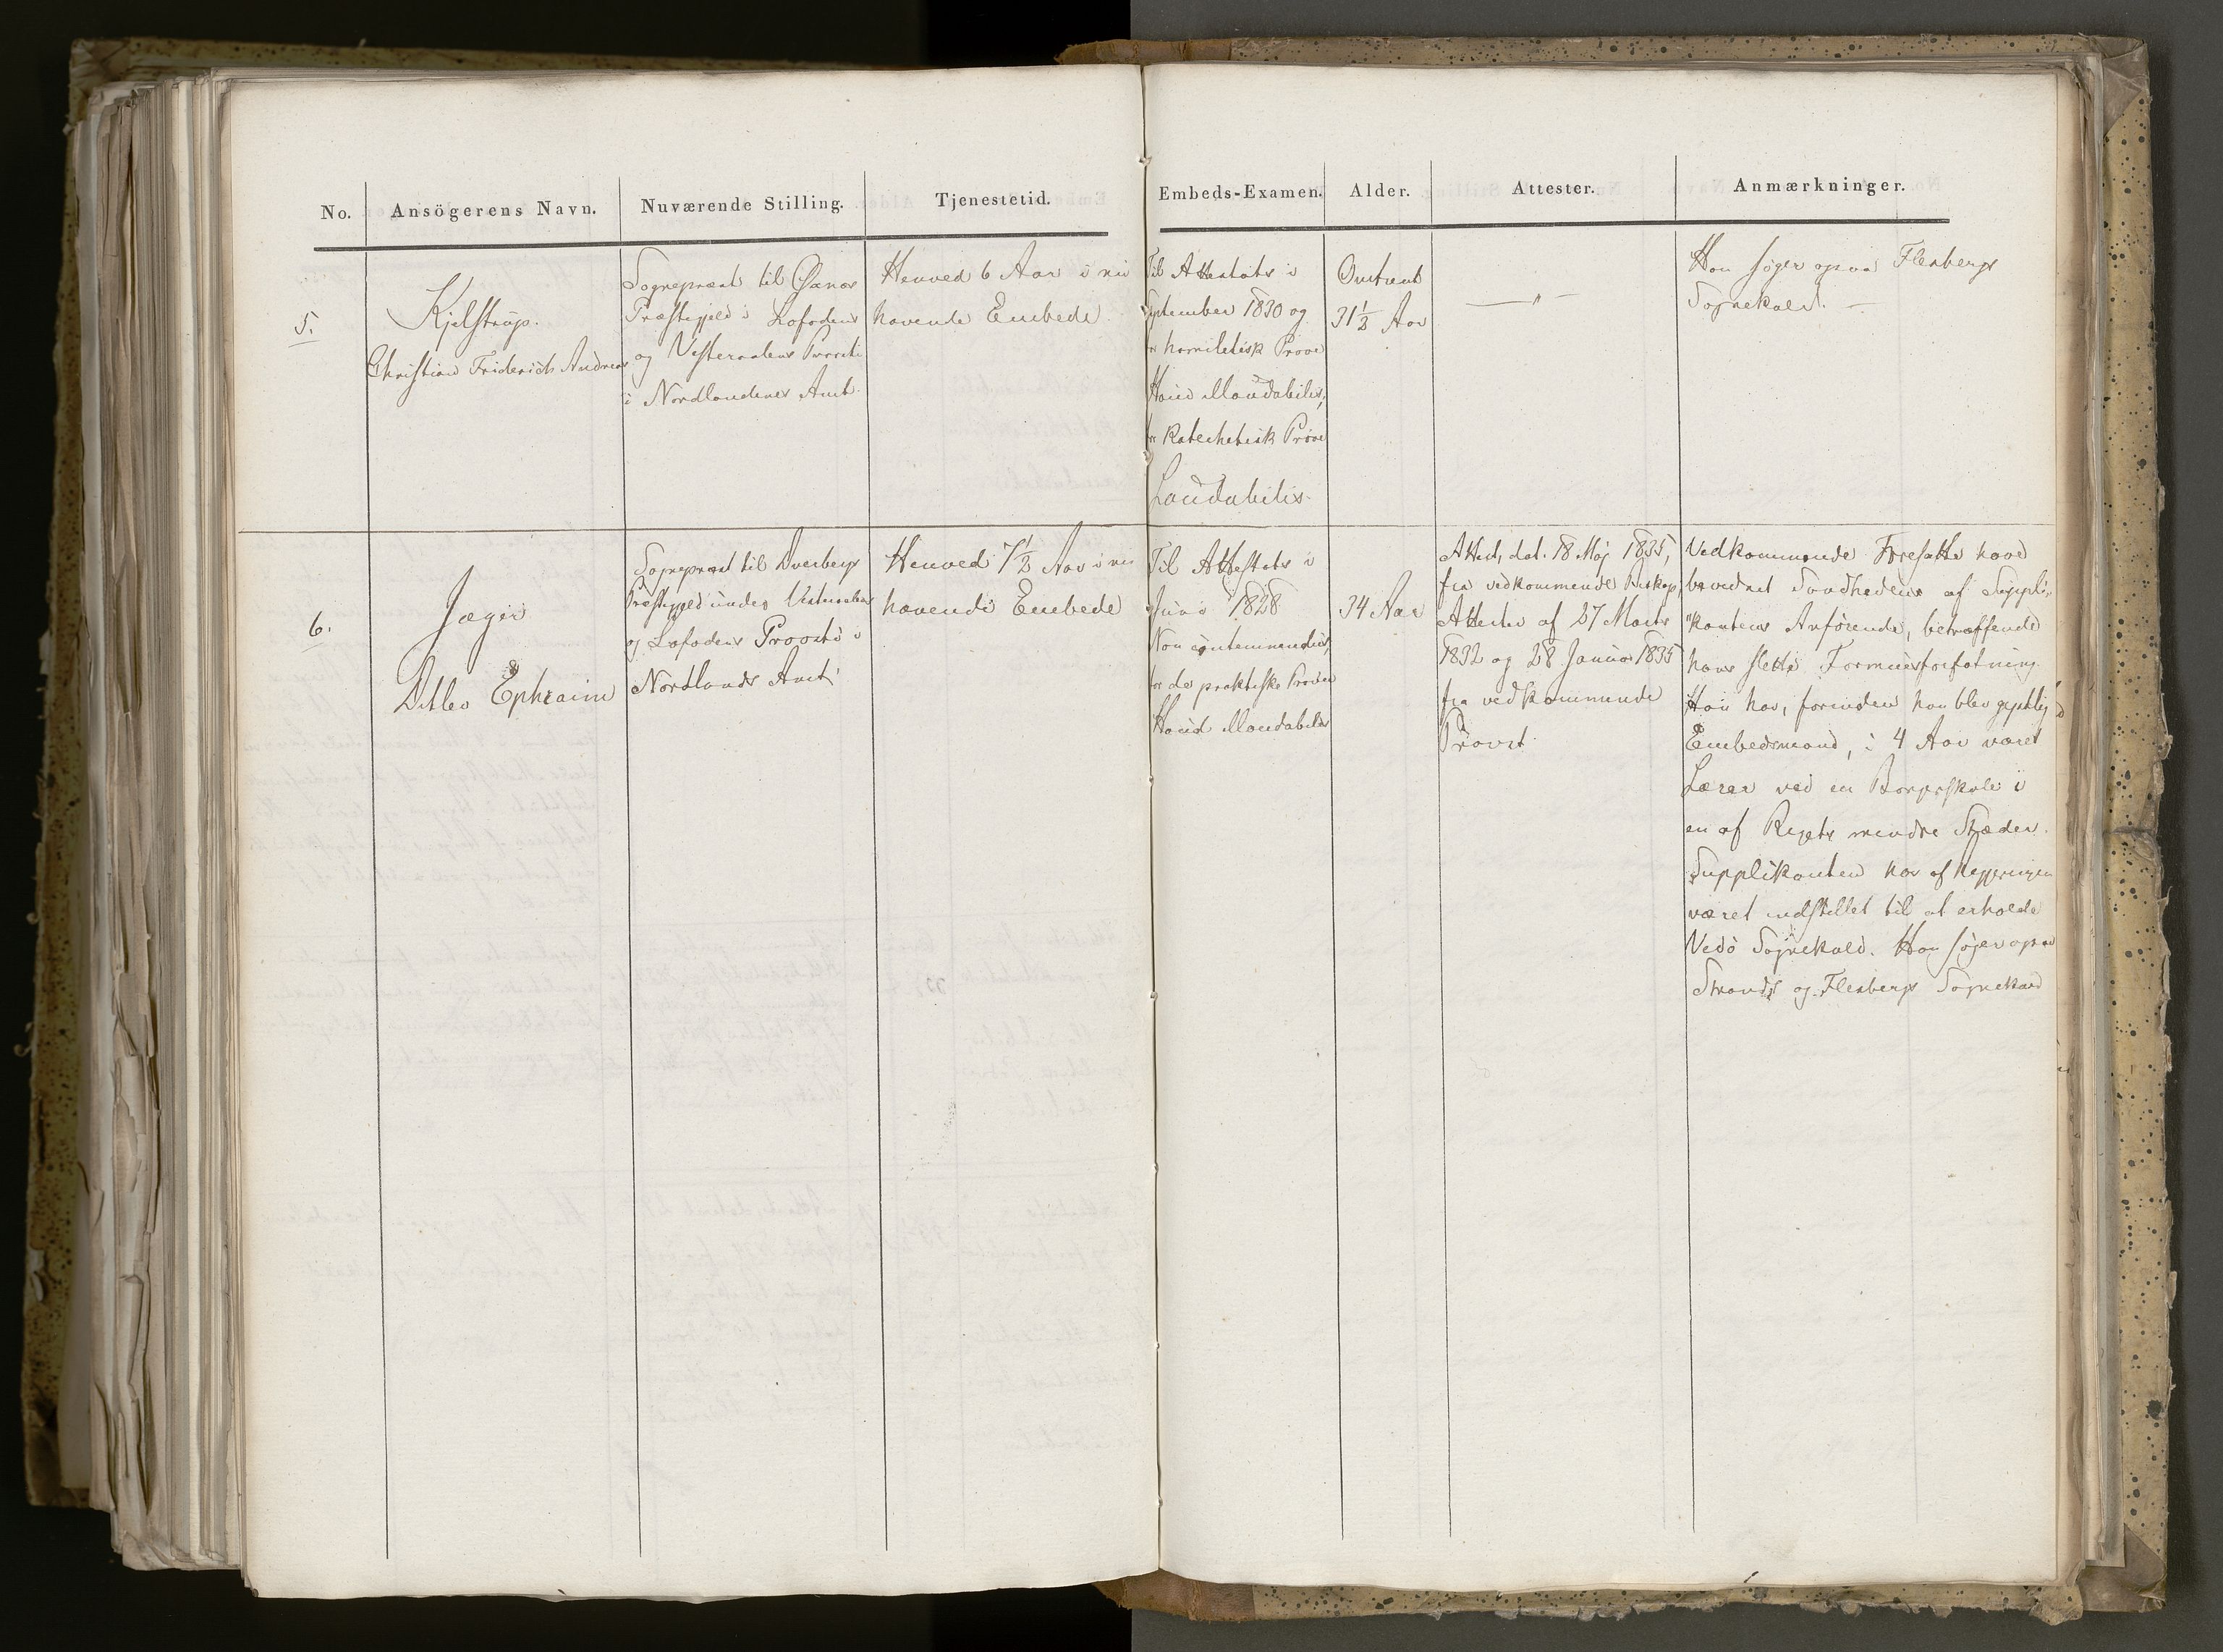 No. Ansögerens Navn. Nuværende Stilling. Tjenestetid. Embeds-Examen. Alder. Attester. Anmærkninger.
5.
Kjelstrup.
Christian Friderich Andreas
Sogneprest til Öxnæs
Præstegjeld i Lofodens
og Vesteraalens Provsti
i Nordlandenes Amt.
Henved 6 Aar i nu
havende Embede.
Til Attestats i
September 1830 og
for homiletisk Prøve
Haud illaudabilis,
for katechetisk Prøve
Laudabilis.
Omtrent
31½ Aar
— " —
Han søger ogsaa Flesbergs
Sognekald. —
6.
Jæger
Ditlev Ephraim
Sogneprest til Dverbergs
Præstegjeld under Vesteraalens
og Lofodens Provsti i
Nordlands Amt.
Henved 7½ Aar i nu
havende Embede
Til Attestats i
Juni 1828
Non contemnendus,
for de praktiske Prøver
Haud illaudabilis
34 Aar
Attest, dat. 18 Maj 1835,
fra vedkommende Biskop,
Attester af 27 Marts
1832 og 28 Januar 1835
fra vedkommende
Provst.
Vedkommende Foresatte have
bevidnet Sandheden af Suppli-
"kantens Anførende, betræffende
hans slette Formuesforfatning.
Han har, forinden han blev geistlig
Embedsmand, i 4 Aar været
Lærer ved en Borgerskole i
en af Rigets mindre Stæder.
Supplikanten har af Regjeringen
været indstillet til at erholde
Vedö Sognekald. Han søger ogsaa
Strands og Flesbergs Sognekald